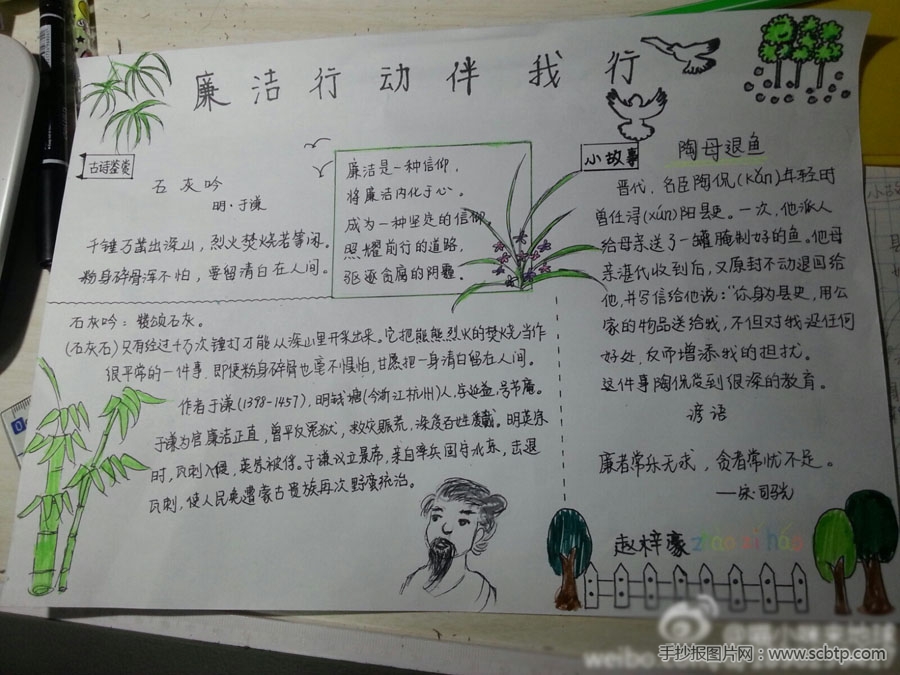 廉洁行动伴我行
古诗鉴赏
石灰吟
明·于谦
千锤万凿出深山，烈火焚烧若等闲。
粉身碎骨浑不怕，要留清白在人间。
廉洁是一种信仰，
将廉洁内化于心。
成为一种坚定的信仰。
照耀前行的道路，
驱逐贪腐的阴霾。
石灰吟：赞颂石灰。
(石灰石)只有经过千万次锤打才能从深山里开采出来。它把熊熊烈火的焚烧当作
很平常的一件事，即使粉身碎骨也毫不惧怕，甘愿把一身清白留在人间。
作者于谦(1398-1457)，明钱塘(今浙江杭州)人，字延益，号节庵。
于谦为官廉洁正直，曾平反冤狱，救灾赈荒，深受百姓爱戴。明英宗
时，瓦剌入侵，英宗被俘。于谦议立景帝，亲自率兵固守北京，击退
瓦剌，使人民免遭蒙古贵族再次野蛮统治。
小故事
陶母退鱼
晋代，名臣陶侃(kǎn)年轻时
曾任浔(xún)阳县吏。一次，他派人
给母亲送了一罐腌制好的鱼。他母
亲湛代收到后，又原封不动退回给
他，并写信给他说："你身为县吏，用公
家的物品送给我，不但对我没任何
好处，反而增添我的担扰。
这件事陶侃受到很深的教育。
谚语
廉者常乐无求，贪者常忧不足。
——宋·司马光
赵梓豪 zhào zǐ háo
手抄报图片网：www.scbtp.com
weibo